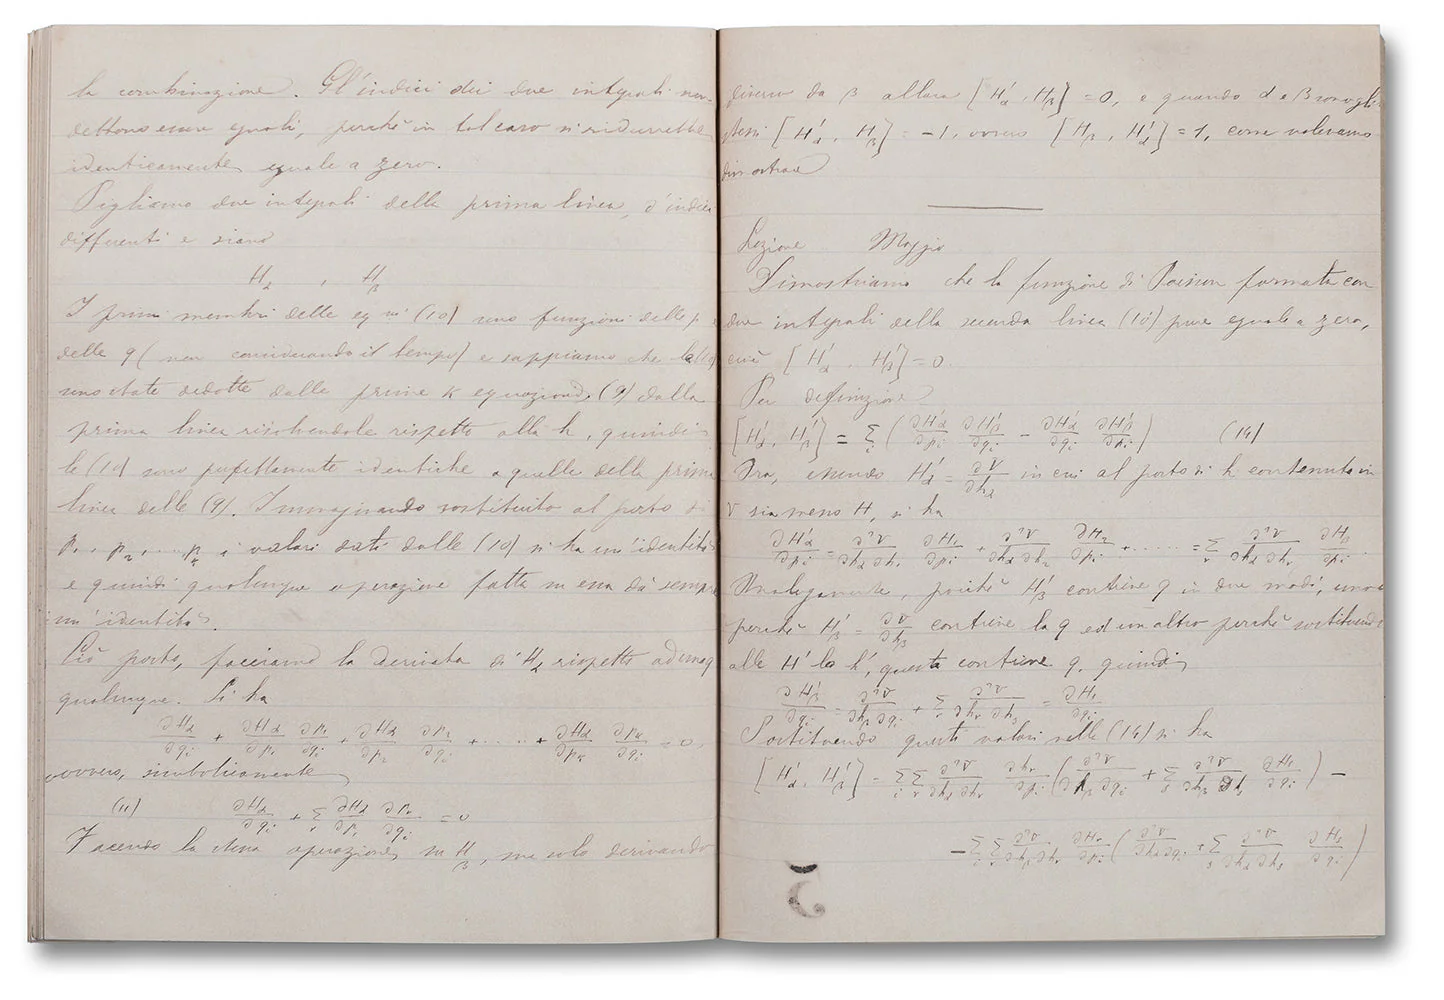 la combinazione. Gl'indici dei due integrali non
debbono essere eguali, perchè in tal caso si ridurrebbe
identicamente eguale a zero.
Pigliamo due integrali della prima linea, d'indici
differenti e siano
H_α , H_β
I primi membri delle eq ni (10) sono funzioni delle p e
delle q (non considerando il tempo) e sappiamo che le (10)
sono state dedotte dalle prime k equazioni (9) dalla
prima linea risolvendole rispetto alla h, quindi
le (10) sono perfettamente identiche a quelle della prima
linea delle (9). Immaginando sostituito al posto di
p₁, p₂, ... p_k i valori dati dalle (10) si ha un'identità
e quindi qualunque operazione fatta su essa dà sempre
un'identità.
Ciò posto, facciamo la derivata di H_α rispetto ad una q
qualunque. Si ha
∂H_α/∂q_i + ∂H_α/∂p₁ ∂p₁/∂q_i + ∂H_α/∂p₂ ∂p₂/∂q_i + ..... + ∂H_α/∂p_k ∂p_k/∂q_i = 0,
ovvero, simbolicamente
(11) ∂H_α/∂q_i + Σ_r ∂H_α/∂p_r ∂p_r/∂q_i = 0
Facendo la stessa operazione su H_β, ma solo derivando
diverso da β allora [H'_α, H_β] = 0, e quando α e β sono gli
stessi [H'_α, H_β] = -1, ovvero [H_β, H'_α] = 1, come volevamo
dimostrare
Lezione Maggio
Dimostriamo che la funzione di Poisson formata con
due integrali della seconda linea (10) pure eguale a zero,
cioè [H'_α, H'_β] = 0
Per definizione
[H'_α, H'_β] = Σ_i (∂H'_α/∂p_i ∂H'_β/∂q_i - ∂H'_α/∂q_i ∂H'_β/∂p_i) (14)
Ora, essendo H'_α = ∂V/∂h_α in cui al posto di h contenuta in
V sia messo H, si ha
∂H'_α/∂p_i = ∂²V/∂h_α∂h₁ ∂H₁/∂p_i + ∂²V/∂h_α∂h₂ ∂H₂/∂p_i + ...... = Σ_r ∂²V/∂h_α∂h_r ∂H_r/∂p_i
Analogamente, poichè H'_β contiene q in due modi, uno
perchè H'_β = ∂V/∂h_β contiene la q ed un altro perchè sostituendo
alle H' la h', questa contiene q, quindi
∂H'_β/∂q_i = ∂²V/∂h_β∂q_i + Σ_r ∂²V/∂h_r∂h_s = ∂H_s/∂q_i
Sostituendo questi valori nelle (14) si ha
[H'_α, H'_β] = Σ_i Σ_r ∂²V/∂h_α∂h_r ∂h_r/∂p_i (∂²V/∂h_β∂q_i + Σ_s ∂²V/∂h_β∂h_s ∂H_s/∂q_i) -
- Σ_i Σ_r ∂²V/∂h_β∂h_r ∂H_r/∂p_i (∂²V/∂h_α∂q_i + Σ_s ∂²V/∂h_α∂h_s ∂H_s/∂q_i)